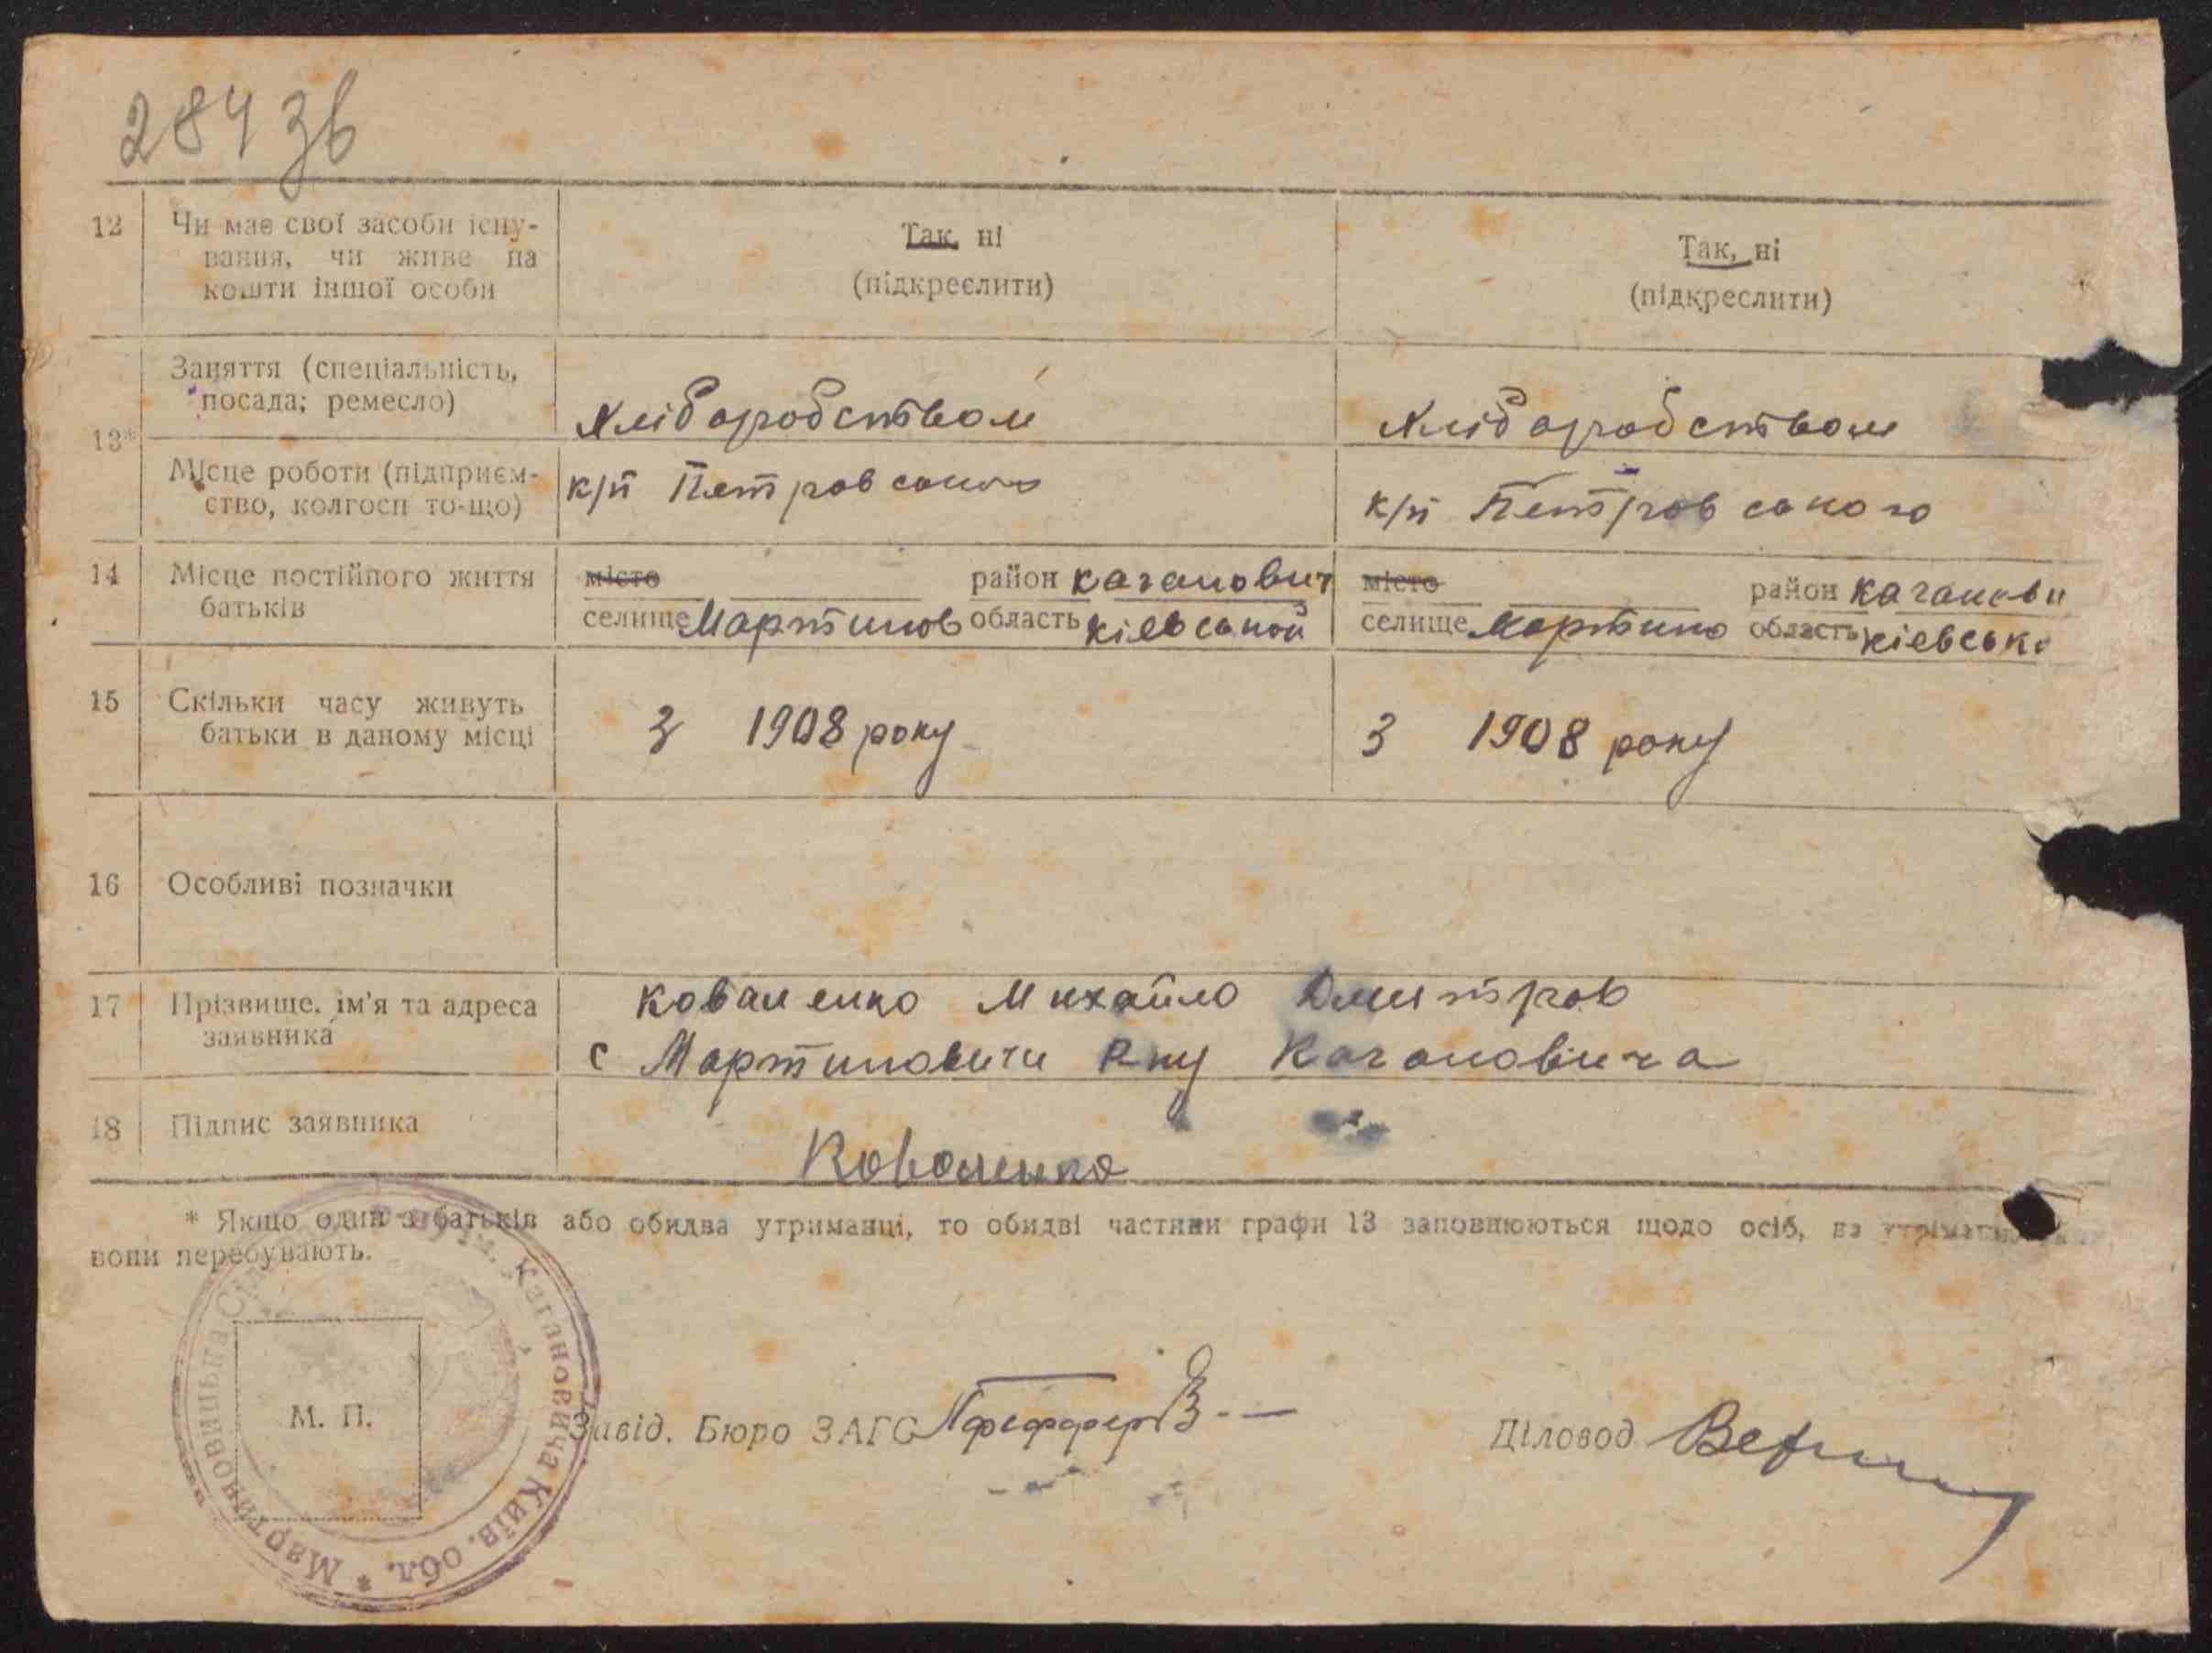 284 зв
12 Чи має свої засоби існу-
вання, чи живе на
кошти іншої особи
Так, ні
(підкреслити)
Так, ні
(підкреслити)
13*
Заняття (спеціальність,
посада; ремесло)
Хліборобством
Хліборобством
Місце роботи (підприєм-
ство, колгосп то-що)
к/п Петровсського
к/п Петровського
14 Місце постійного життя
батьків
місто район Каганович
селище Мартинов область Кіевської
місто район Каганови
селище Мартино область Кіевсько
15 Скільки часу живуть
батьки в даному місці
З 1908 року
З 1908 року
16 Особливі позначки
17 Прізвище, ім'я та адреса
заявника
Коваленко Михайло Дмитров
с Мартиновичи Р-ну Кагановіча
18 Підпис заявника
Коваленко
* Якщо один з батьків або обидва утриманці, то обидві частини графи 13 заповнюються щодо осіб, на
вони перебувають.
М. П.
Мартиновицька Кагановича Київ. обл. *
Завід. Бюро ЗАГС
Діловод